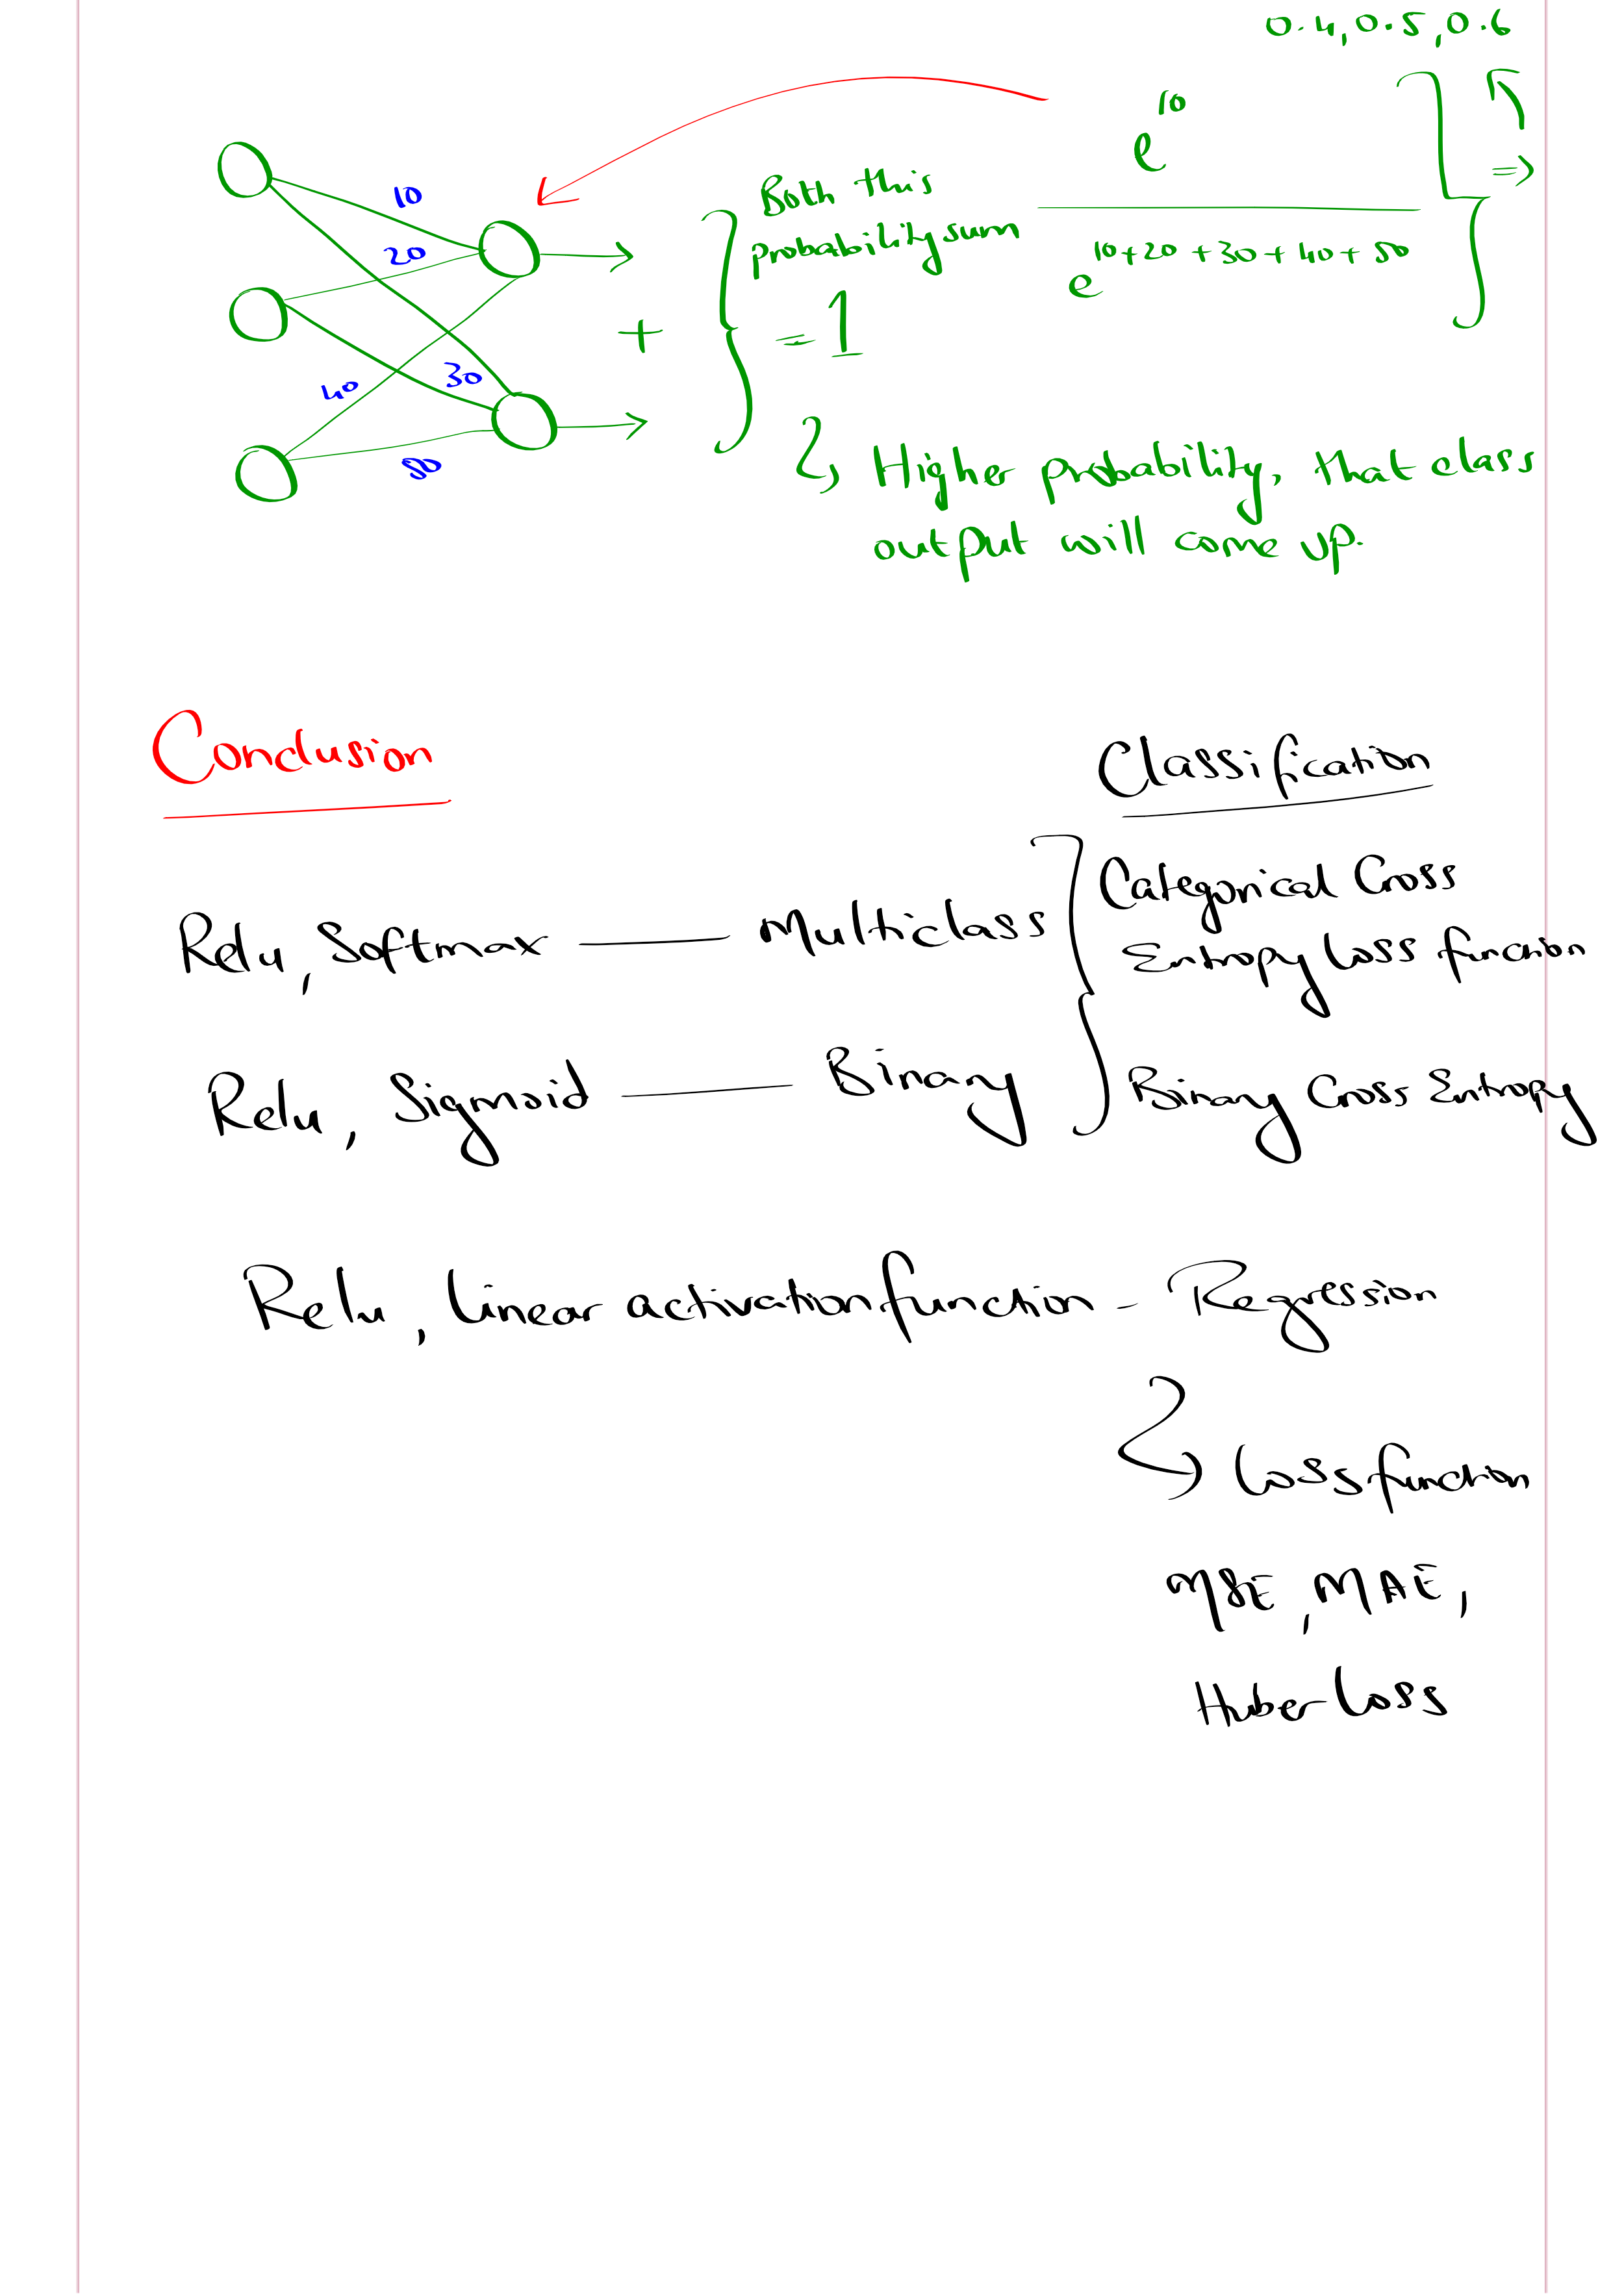 0.4, 0.5, 0.6
e^10
10
Both this
probability sum
20
e^10+20+30+40+50
+
= 1
30
40
50
Higher probability, that class
output will come up.
Conclusion
Classification
Relu, Softmax — Multiclass
Categorical Cross
Entropy Loss function
Relu, Sigmoid — Binary
Binary Cross Entropy
Relu, Linear activation function - Regression
Loss function
MSE, MAE,
Huber Loss